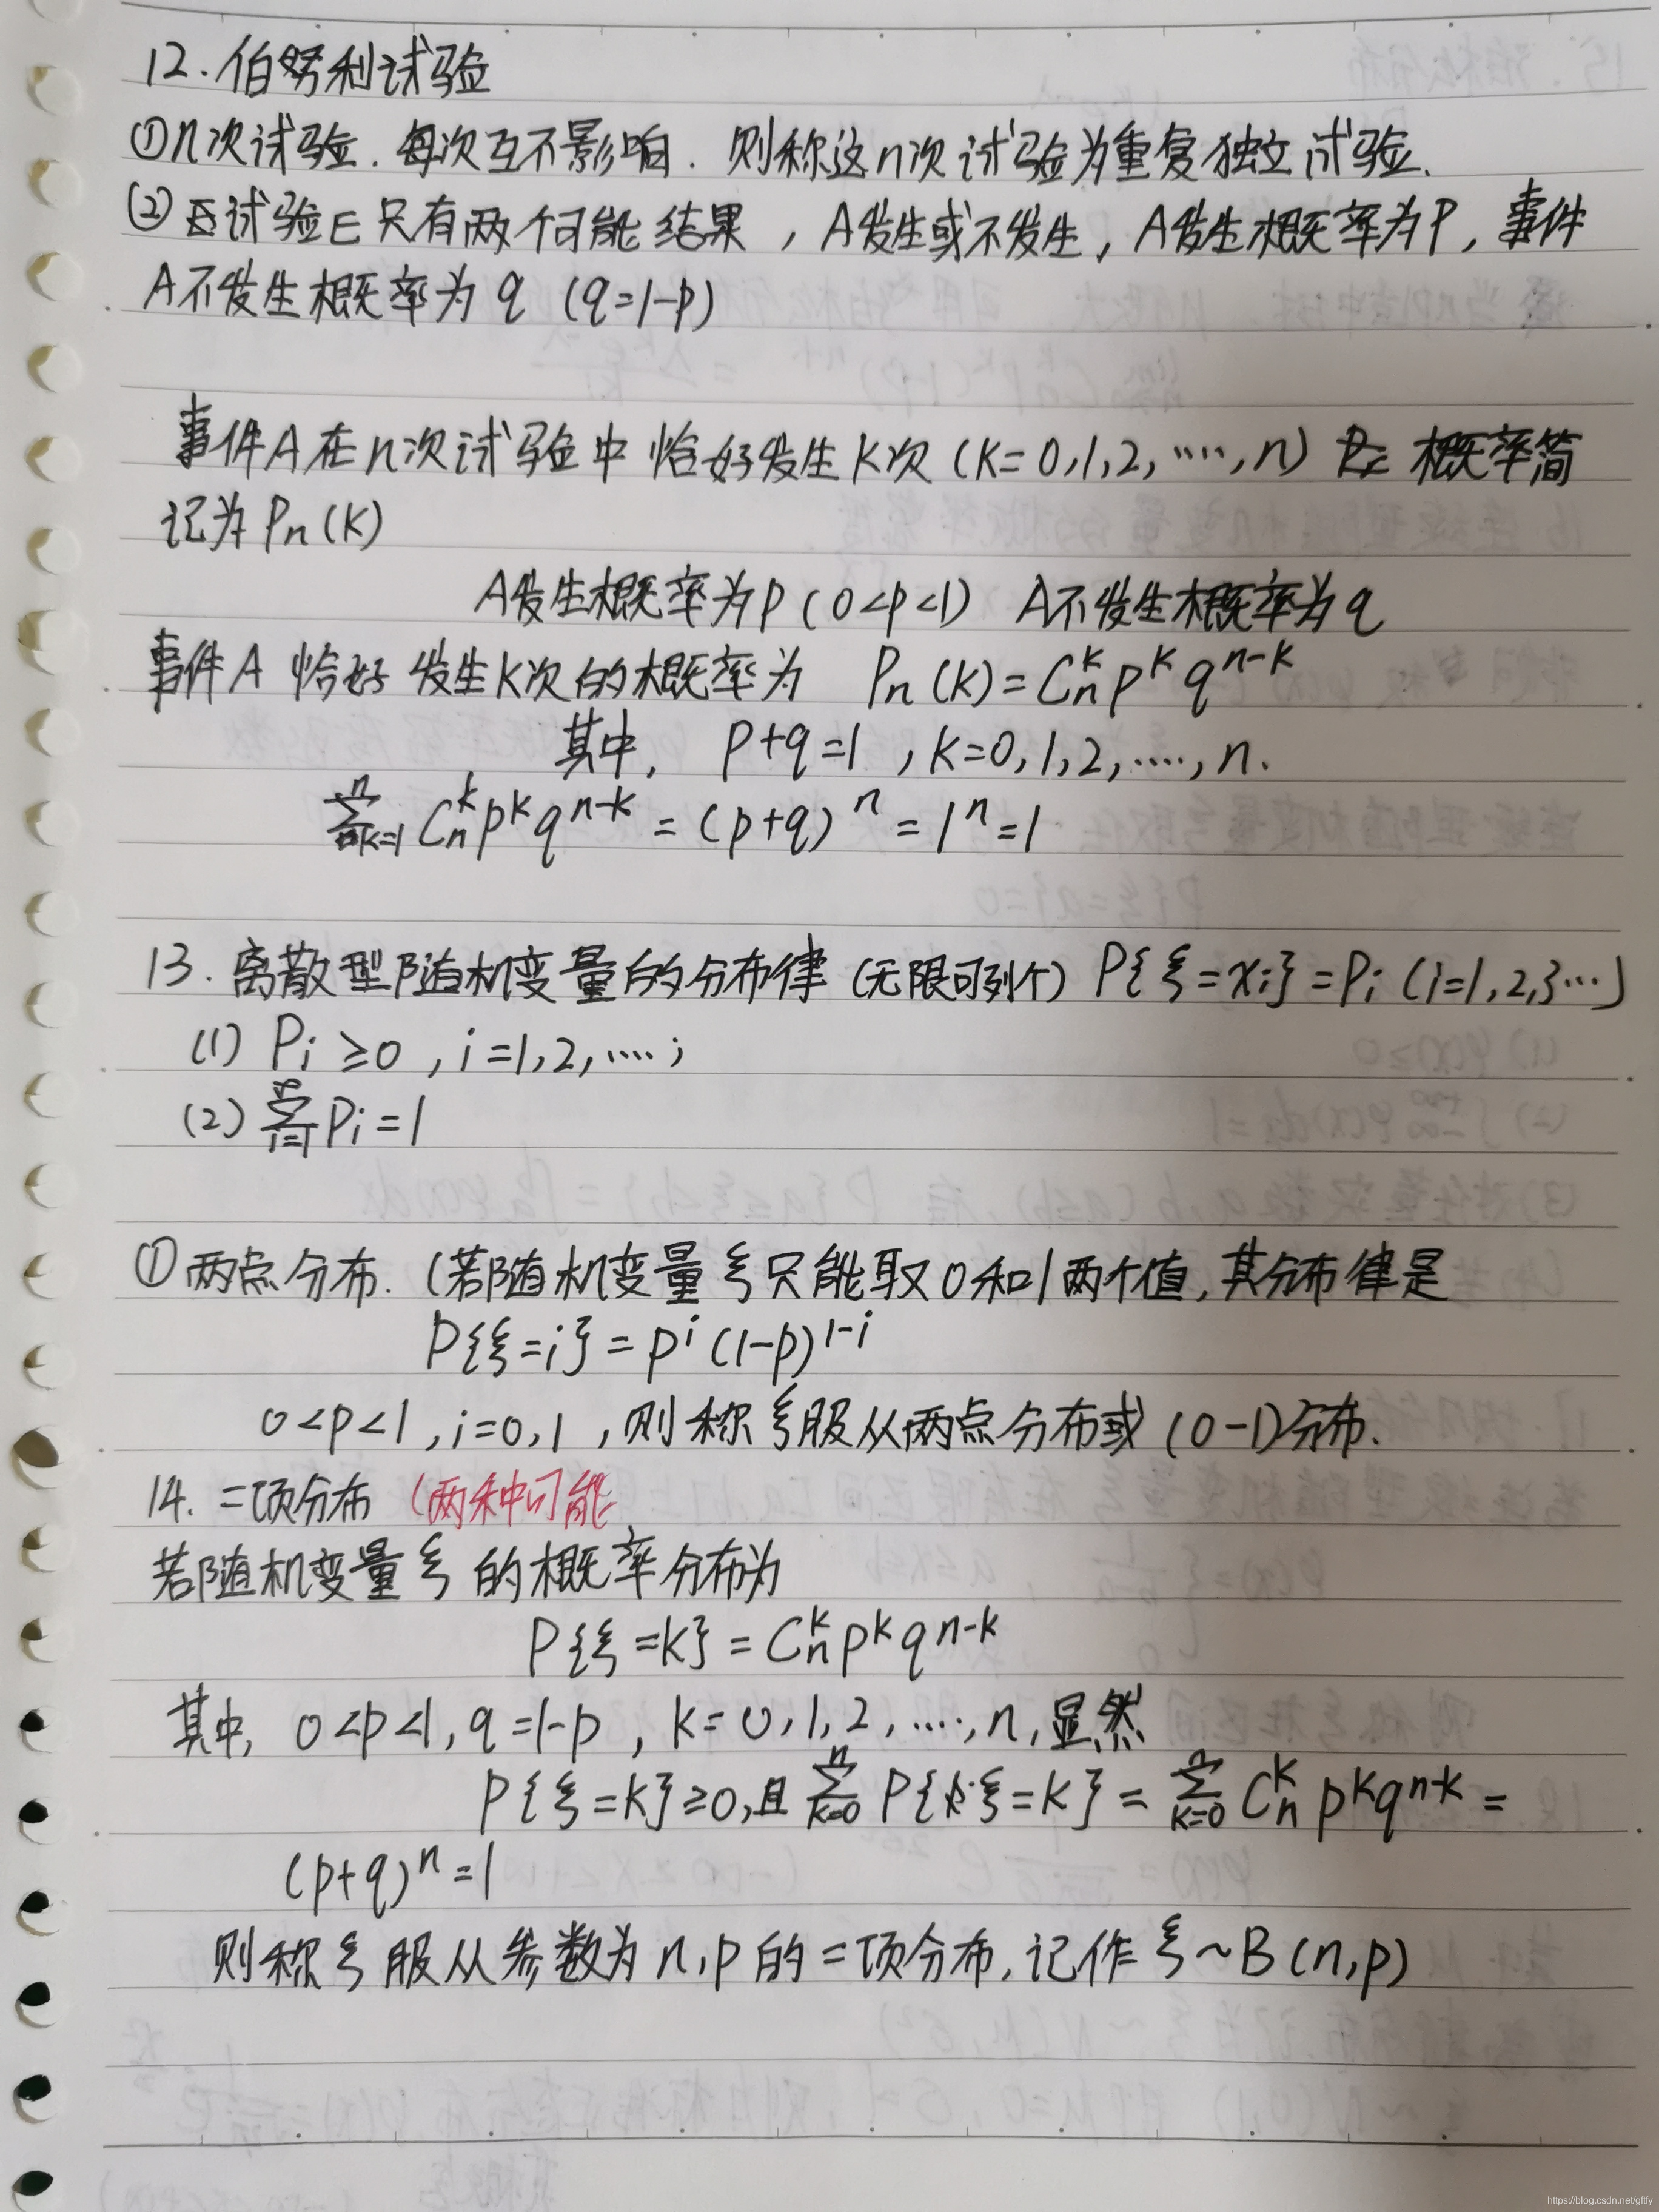 12. 伯努利试验
①n次试验. 每次互不影响. 则称这n次试验为重复独立试验.
(2) 试验E只有两个可能结果，A发生或不发生，A发生概率为P，事件
A不发生概率为q (q=1-p)
事件A在n次试验中恰好发生K次 (K=0,1,2,……,n) 概率简
记为Pn(K)
A发生概率为P (0<p<1) A不发生概率为q
事件A 恰好发生K次的概率为 Pn(K)=Cₙᵏpᵏqⁿ⁻ᵏ
其中, p+q=1 , K=0,1,2,……,n.
∑ⁿₖ₌₁ Cₙᵏpᵏqⁿ⁻ᵏ = (p+q)ⁿ = 1ⁿ=1
13. 离散型随机变量的分布律 (无限可列个) P{ξ=xᵢ}=Pᵢ (i=1,2,3…)
(1) Pᵢ≥0 , i=1,2,……;
(2) ∑^∞ᵢ₌₁ Pᵢ=1
①两点分布. (若随机变量ξ只能取0和1两个值,其分布律是
P{ξ=i}=pⁱ(1-p)¹⁻ⁱ
0<p<1,i=0,1 ,则称ξ服从两点分布或(0-1)分布.
14. 二项分布 (两种可能
若随机变量ξ的概率分布为
P{ξ=K}=Cₙᵏpᵏqⁿ⁻ᵏ
其中, 0<p<1,q=1-p , K=0,1,2,……,n,显然
P{ξ=K}≥0,且 ∑ⁿₖ₌₀ P{ξ=K} = ∑ⁿₖ₌₀ Cₙᵏ pᵏqⁿ⁻ᵏ =
(p+q)ⁿ=1
则称ξ服从参数为n,p的二项分布,记作ξ~B(n,p)
https://blog.csdn.net/gftfy